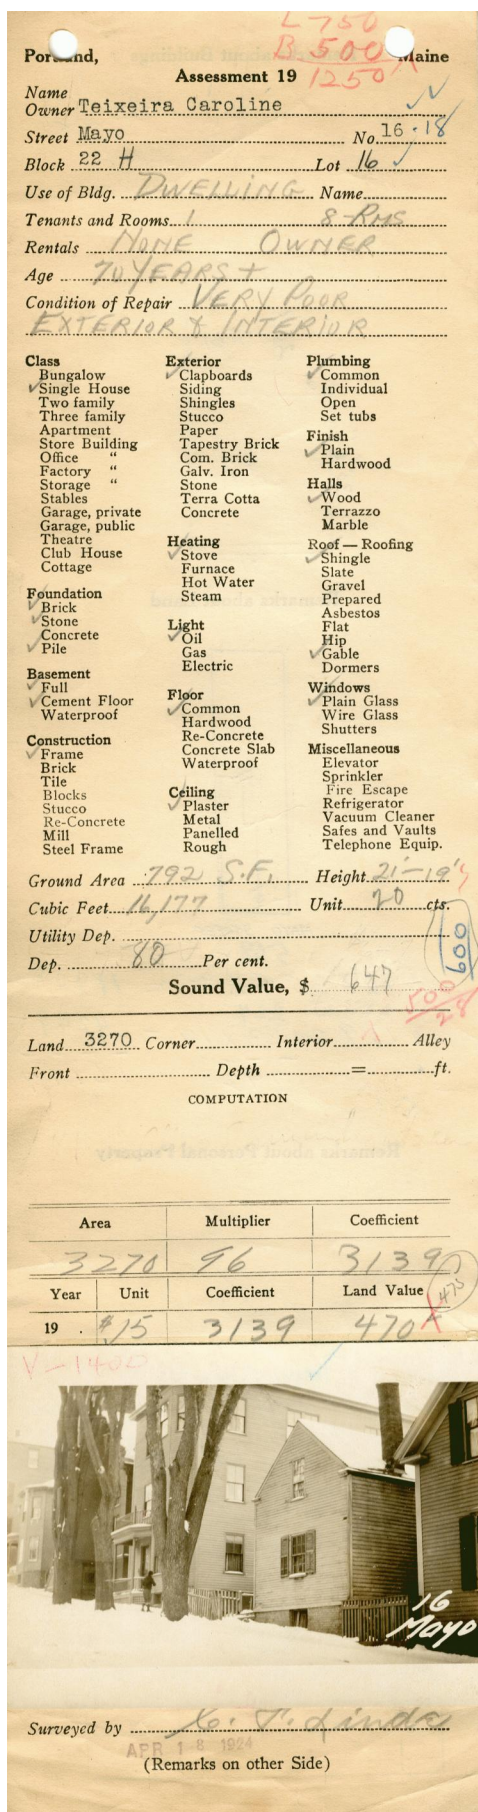 L-750
B 500
1250
Portland, Maine
Assessment 19
Name
Owner Teixeira Caroline
Street Mayo No. 16-18
Block 22 H Lot 16
Use of Bldg. DWELLING Name
Tenants and Rooms 1 8-RMS
Rentals NONE OWNER
Age 70 YEARS +
Condition of Repair VERY POOR
EXTERIOR & INTERIOR
Class
Bungalow
✓Single House
Two family
Three family
Apartment
Store Building
Office "
Factory "
Storage "
Stables
Garage, private
Garage, public
Theatre
Club House
Cottage
Foundation
✓Brick
✓Stone
✓Concrete
✓Pile
Basement
✓Full
✓Cement Floor
Waterproof
Construction
✓Frame
Brick
Tile
Blocks
Stucco
Re-Concrete
Mill
Steel Frame
Exterior
✓Clapboards
Siding
Shingles
Stucco
Paper
Tapestry Brick
Com. Brick
Galv. Iron
Stone
Terra Cotta
Concrete
Heating
✓Stove
Furnace
Hot Water
Steam
Light
✓Oil
Gas
Electric
Floor
✓Common
Hardwood
Re-Concrete
Concrete Slab
Waterproof
Ceiling
✓Plaster
Metal
Panelled
Rough
Plumbing
✓Common
Individual
Open
Set tubs
Finish
✓Plain
Hardwood
Halls
✓Wood
Terrazzo
Marble
Roof — Roofing
✓Shingle
Slate
Gravel
Prepared
Asbestos
Flat
Hip
✓Gable
Dormers
Windows
✓Plain Glass
Wire Glass
Shutters
Miscellaneous
Elevator
Sprinkler
Fire Escape
Refrigerator
Vacuum Cleaner
Safes and Vaults
Telephone Equip.
Ground Area 792 S.F. Height 21'-19'
Cubic Feet 16,177 Unit 20 cts.
Utility Dep.
600
Dep. 80 Per cent.
Sound Value, $ 647
500/28
Land 3270 Corner Interior Alley
Front Depth = ft.
COMPUTATION
Area Multiplier Coefficient
3270 96 3139
Year Unit Coefficient Land Value
475
19 $15 3139 470
V-1400
16
Mayo
Surveyed by
APR 18 1924
(Remarks on other Side)